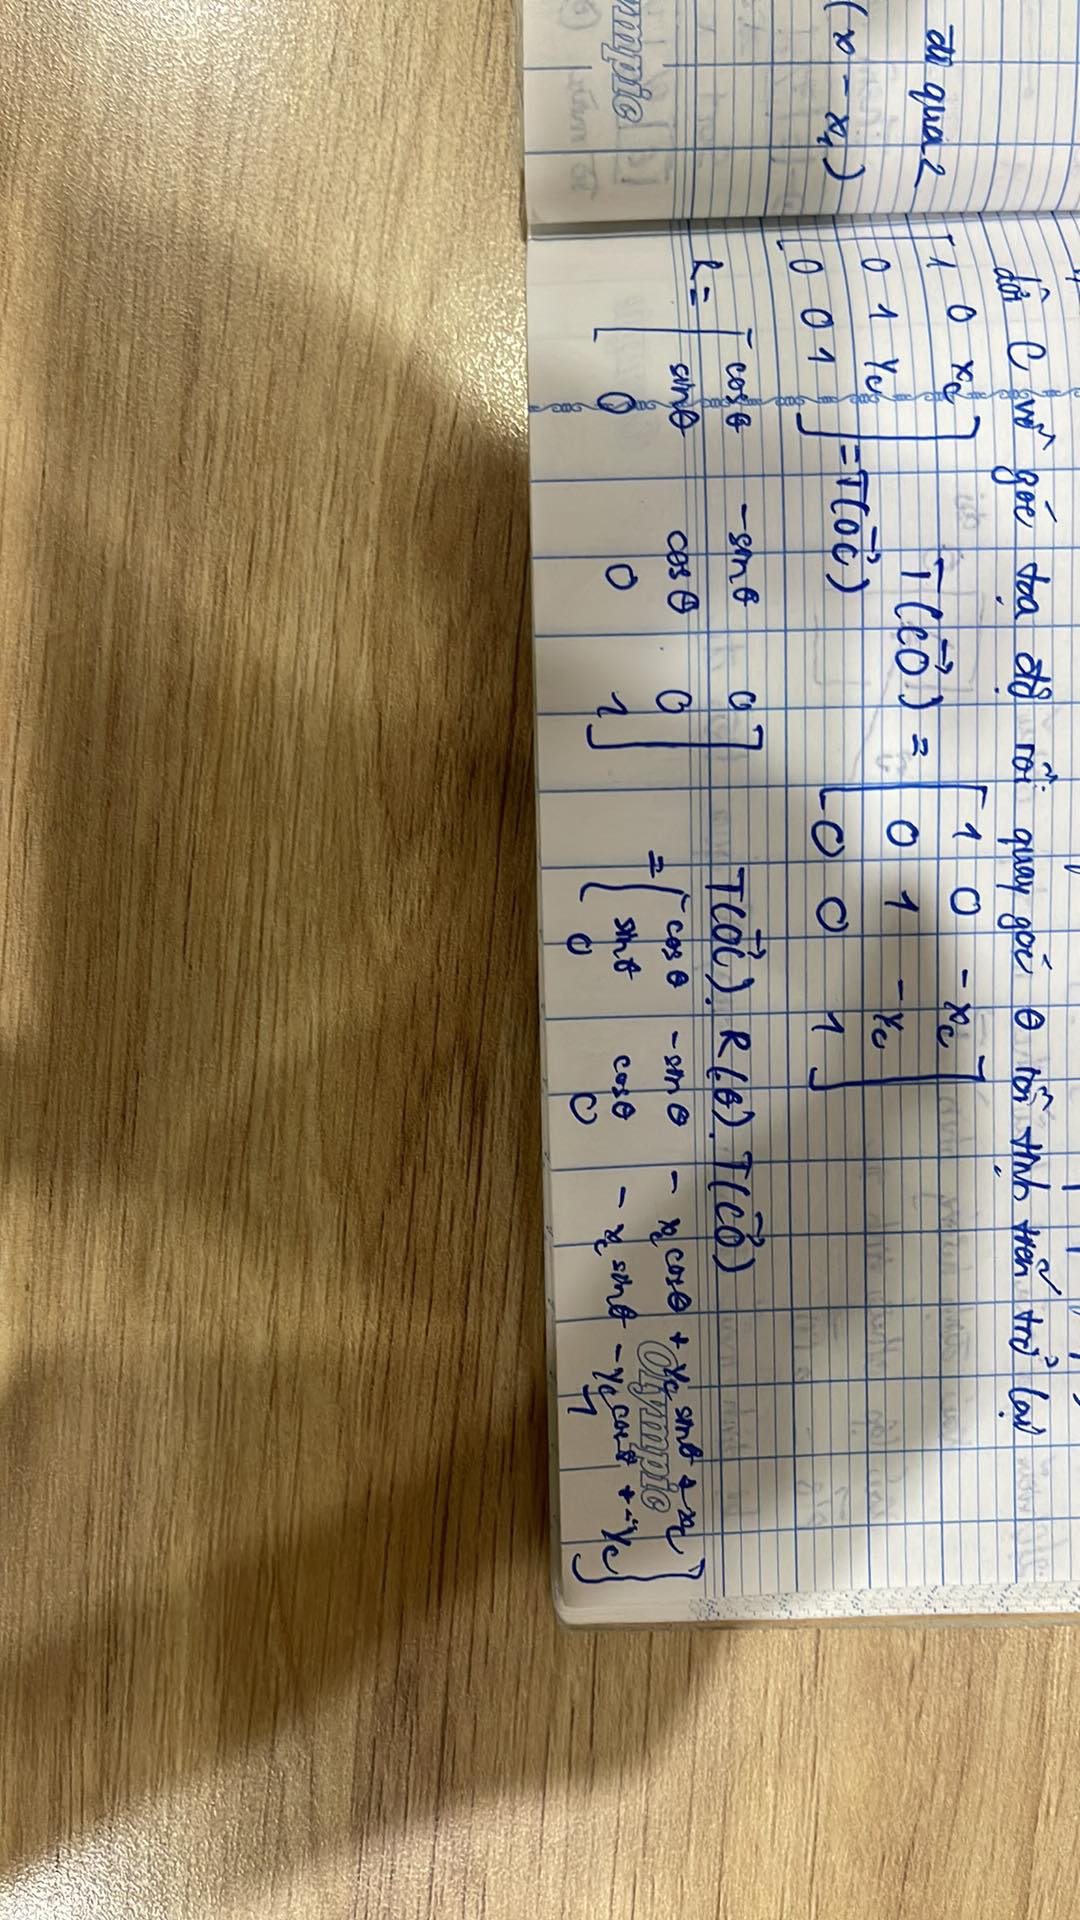 đi qua 2
(x - x₁)
Olympic
dời C về gốc tọa độ rồi quay góc θ rồi tịnh tiến trở lại
[1 0 x_c
0 1 y_c
0 0 1] = T(OC→)
T(CO→) = [1 0 -x_c
0 1 -y_c
0 0 1]
R = [cosθ -sinθ 0
sinθ cosθ 0
0 0 1]
T(OC→). R(θ). T(CO→)
= [cosθ -sinθ - x_c cosθ + y_c sinθ + x_c
sinθ cosθ - x_c sinθ - y_c cosθ + y_c
0 0 1]
Olympic